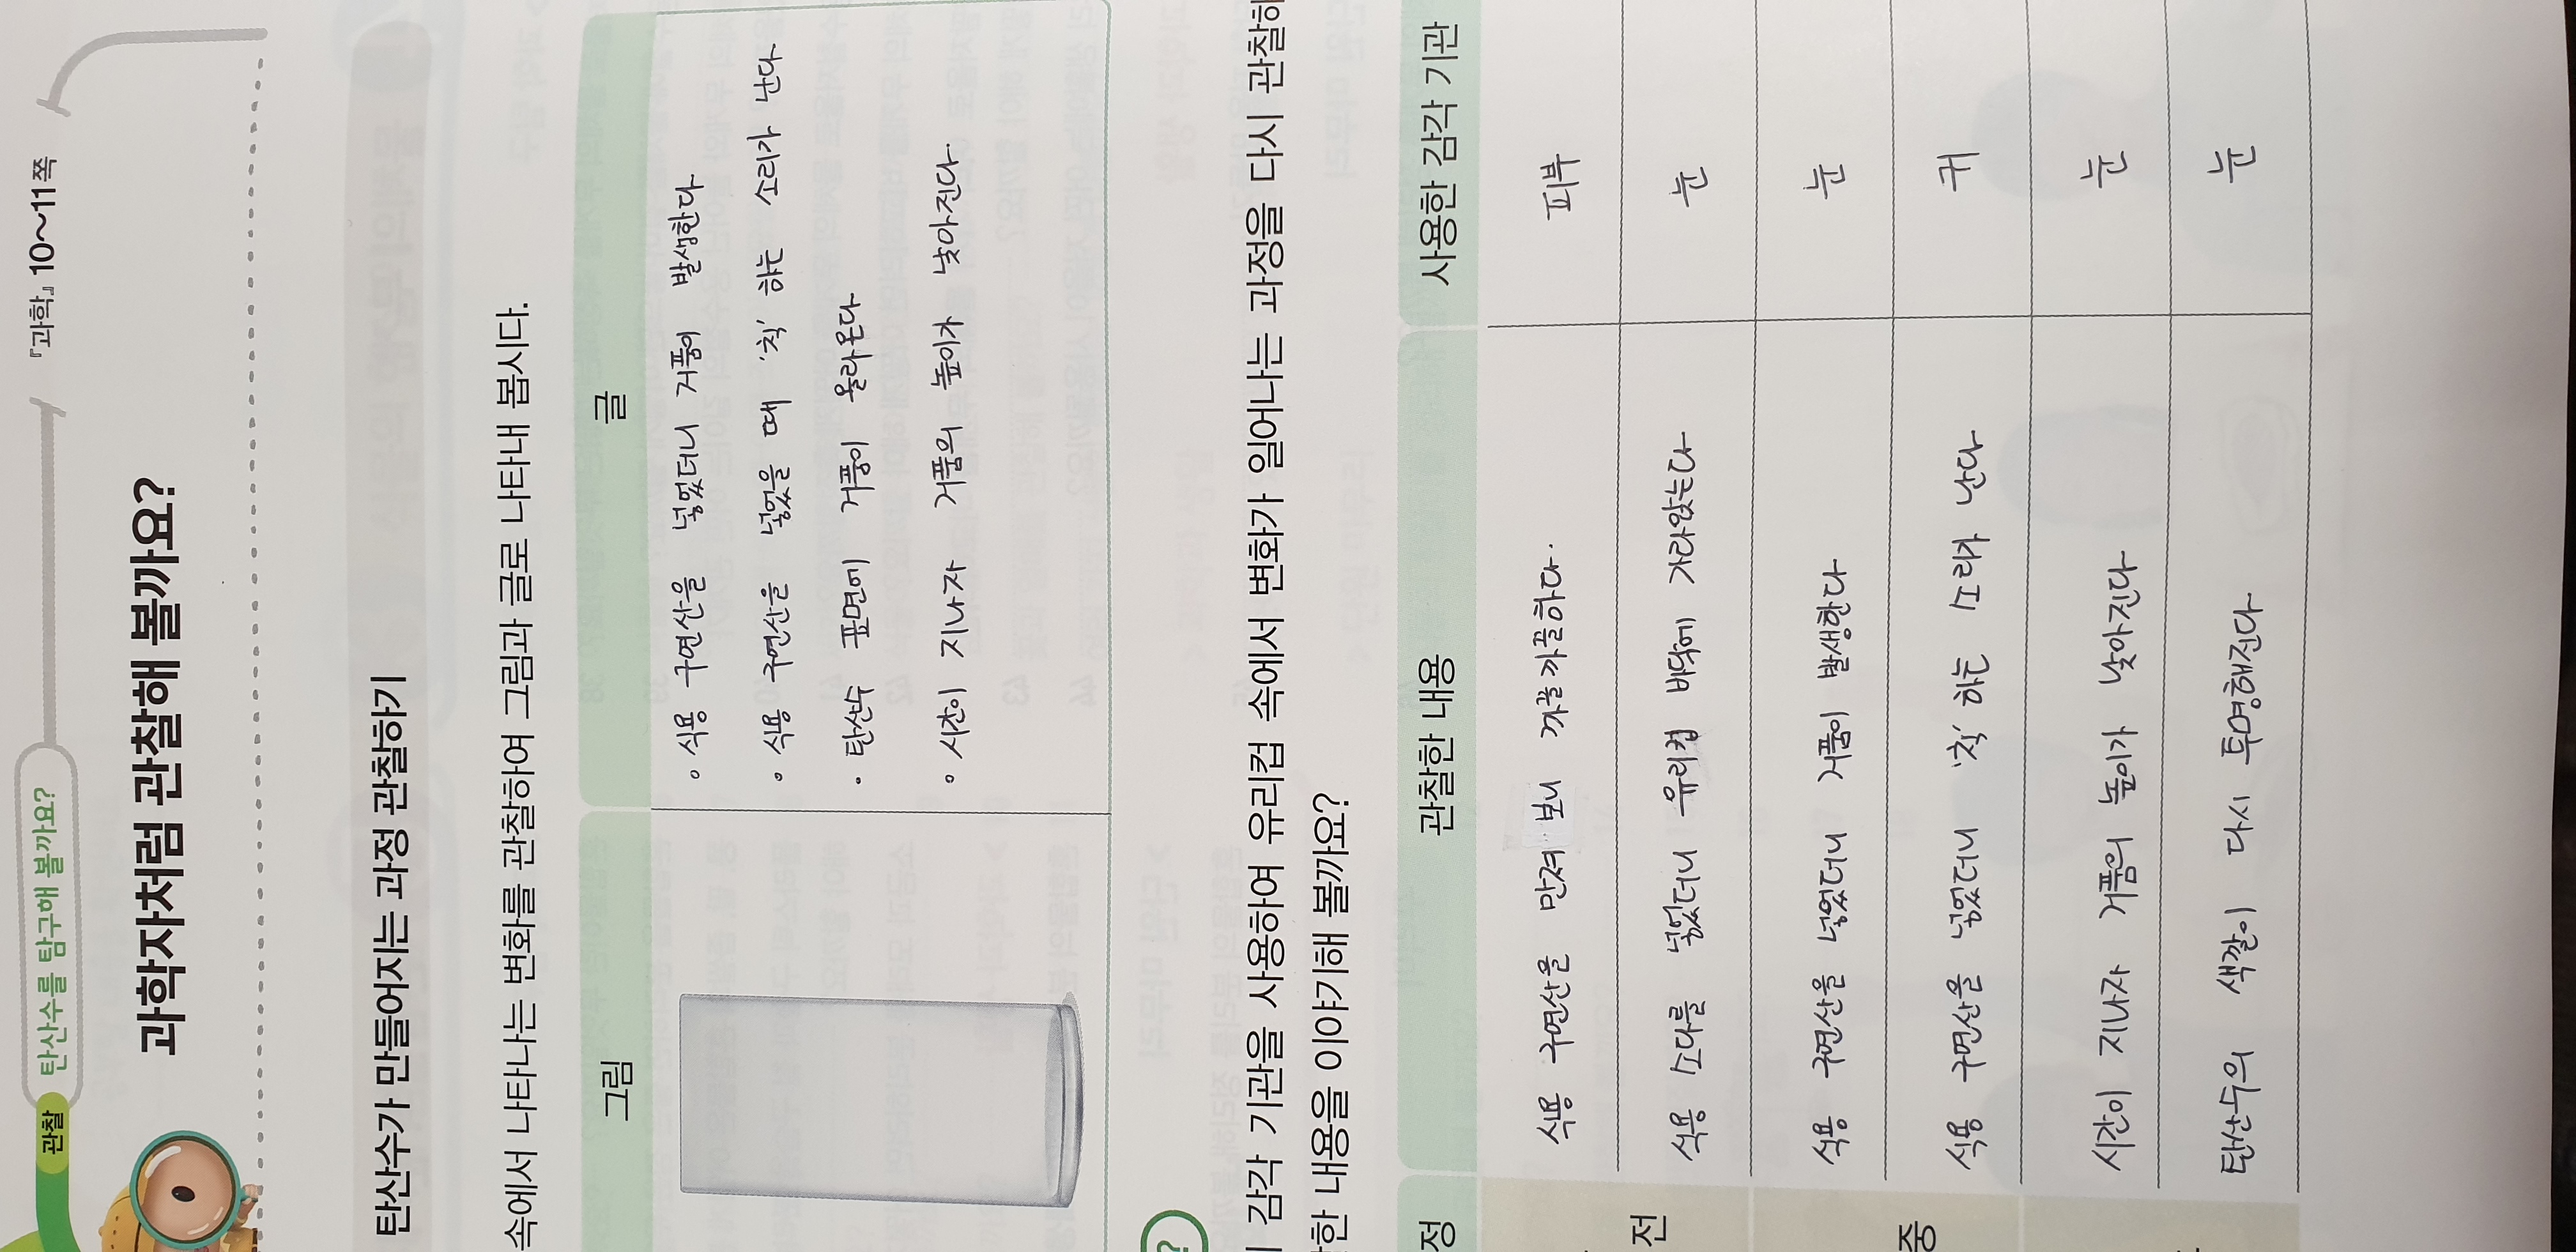 관찰 탄산수를 탐구해 볼까요? 『과학』 10~11쪽
과학자처럼 관찰해 볼까요?
탄산수가 만들어지는 과정 관찰하기
속에서 나타나는 변화를 관찰하여 그림과 글로 나타내 봅시다.
그림 글
식용 구연산을 넣었더니 거품이 발생한다
식용 구연산을 넣었을 때 '칙' 하는 소리가 난다
탄산수 표면에 거품이 올라온다
시간이 지나자 거품의 높이가 낮아진다.
?
감각 기관을 사용하여 유리컵 속에서 변화가 일어나는 과정을 다시 관찰해
한 내용을 이야기해 볼까요?
정 관찰한 내용 사용한 감각 기관
식용 구연산을 만져 보니 까끌까끌하다. 피부
전
식용 소다를 넣었더니 유리컵 바닥에 가라앉는다 눈
식용 구연산을 넣었더니 거품이 발생한다 눈
중
식용 구연산을 넣었더니 '칙' 하는 소리가 난다 귀
시간이 지나자 거품의 높이가 낮아진다 눈
탄산수의 색깔이 다시 투명해진다 눈